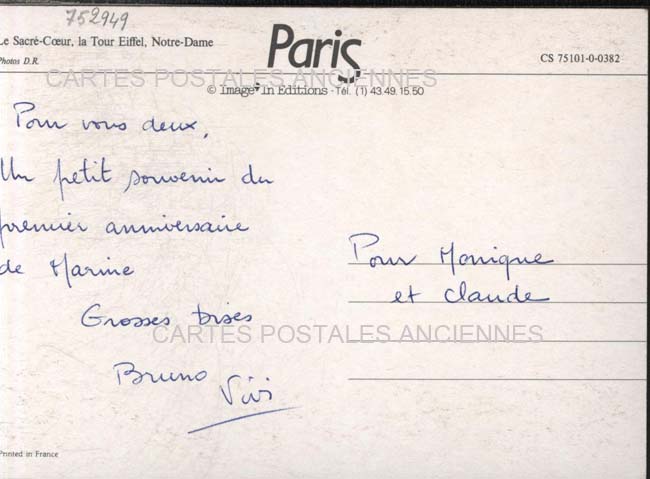 752949
Le Sacré-Cœur, la Tour Eiffel, Notre-Dame
Photos D.R.
Paris
CS 75101-0-0382
CARTES POSTALES ANCIENNES
© Image'In Editions - Tél. (1) 43.49.15.50
Pour vous deux,
Un petit souvenir du
premier anniversaire
de Marine
Grosses bises
Bruno
Vivi
Pour Monique
et Claude
CARTES POSTALES ANCIENNES
Printed in France